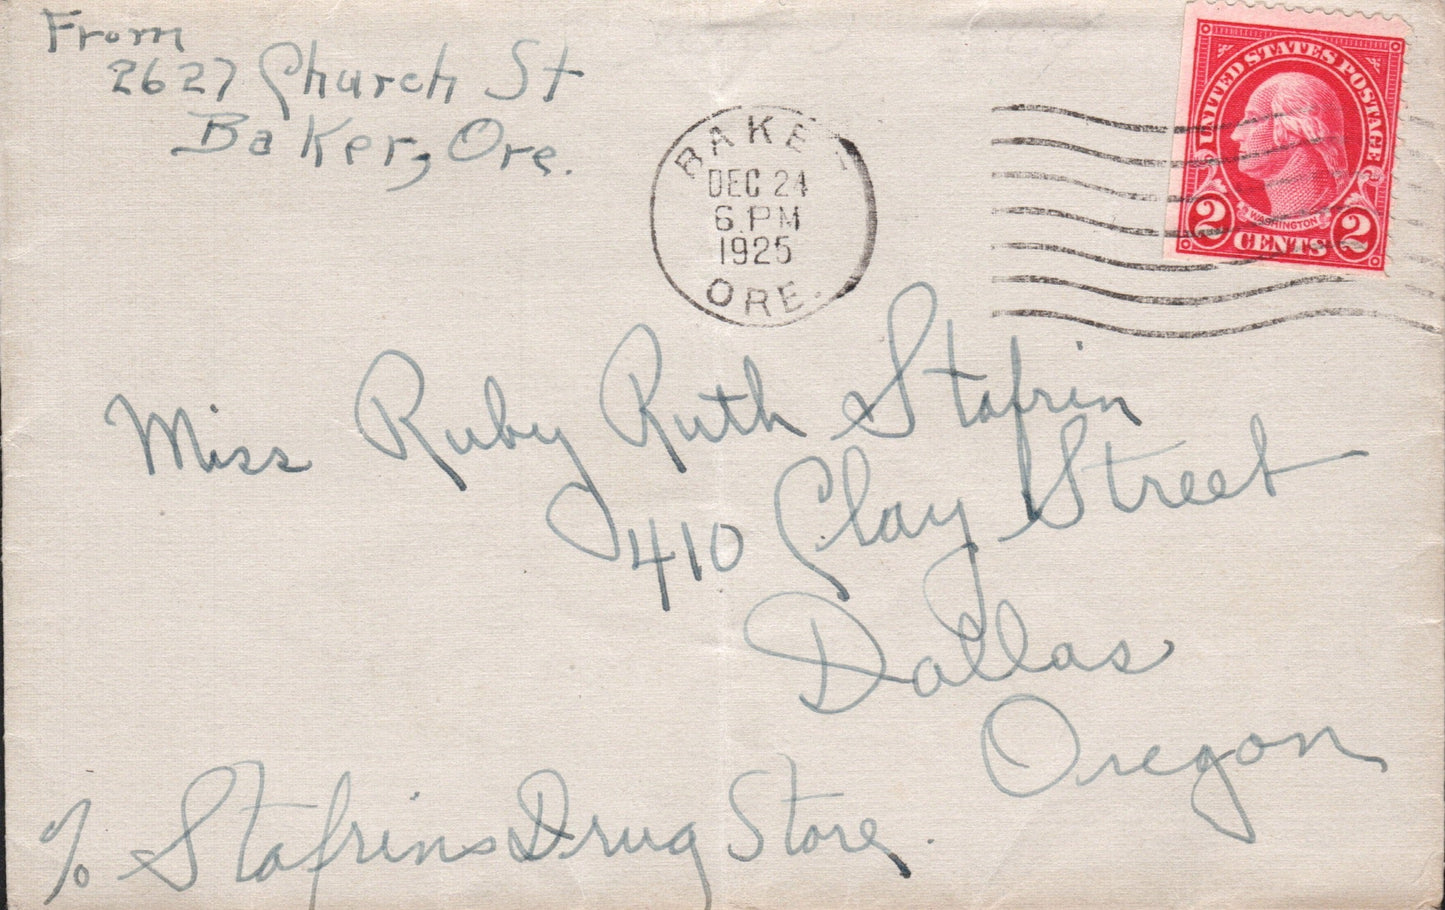 From
2627 Church St
Baker, Ore.
BAKER
DEC 24
6 PM
1925
ORE.
UNITED STATES POSTAGE
WASHINGTON
2 CENTS 2
Miss Ruby Ruth Stafrin
410 Clay Street
Dallas
Oregon
c/o Stafrins Drug Store.